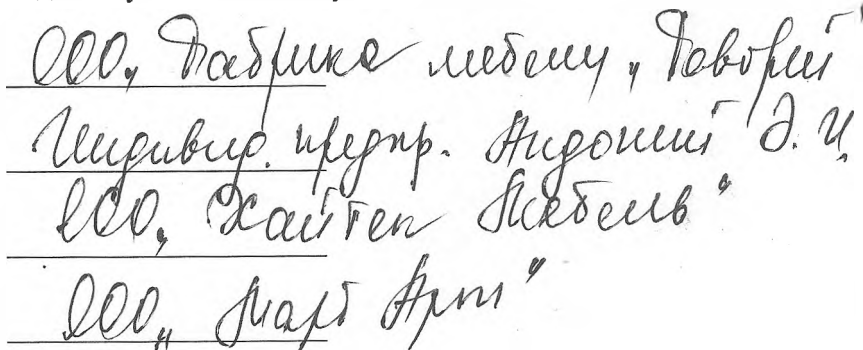 ООО „Фабрика мебели „Фаворит"
Индивид. предпр. Андоний Э. И.
ООО „Хайтек Мебель"
ООО „Март Арт"